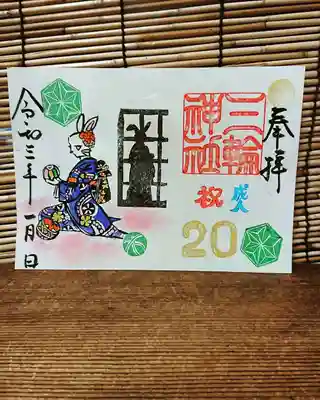 奉拝
三輪
神社
祝
成人
20
令和三年一月日